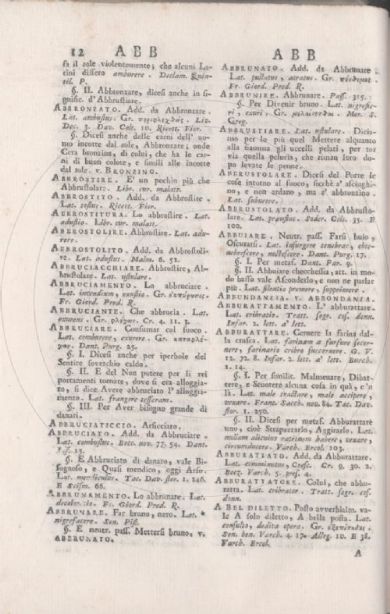 12 ABB
fa il sole violentemente; che alcuni La-
tini dissero amburere. Declam. Quin-
til. P.
§. II. Abbronzare, dicesi anche in si-
gnific. d'Abbrustiare.
ABBRONZATO. Add. da Abbronzare.
Lat. ambustus. Gr.
Dec. 3. Dav. Colt. 10. Ricett. Fior.
§. Dicesi anche delle carni dell' uo-
mo incotte dal sole, Abbronzate; onde
Cera bronzina, di colui, che ha le car-
ni di buon colore, e simili alle incotte
dal sole. v. BRONZINO.
ABBROSTIRE. E' un pochin più che
Abbrustolare. Lib. cur. malatt.
ABBROSTITO. Add. da Abbrostire.
Lat. tostus. Ricett. Fior.
ABBROSTITURA. Lo abbrostire. Lat.
adustio. Lib. cur. malatt.
ABBROSTOLIRE. Abbrostire. Lat. adu-
rere.
ABBROSTOLITO. Add. da Abbrostoli-
re. Lat. adustus. Malm. 6. 52.
ABBRUCIACCHIARE. Abbrostire, Ab-
brustolare. Lat. ustulare.
ABBRUCIAMENTO. Lo abbruciare.
Lat. incendium, Gr.
Fr. Giord. Pred. R.
ABBRUCIANTE. Che abbrucia. Lat.
Gr. Cr. 4. 11. 3.
ABBRUCIARE. Consumar col fuoco.
Lat. comburere, exurere. Gr.
Dant. Purg. 25.
§. I. Dicesi anche per iperbole del
Sentire soverchio caldo.
§. II. E del Non potere per li rei
portamenti tornare, dove si era alloggia-
to, si dice Avere abbruciato l' alloggia-
mento. Lat. frangere tesseram.
§. III. Per Aver bisogno grande di
danari.
ABBRUCIATICCIO. Arsicciato.
ABBRUCIATO. Add. da Abbruciare.
Lat. combustus. Bocc. nov. 77. 54. Dant.
Inf. 15.
§. E Abbruciato di danaro, vale Bi-
sognoso, e Quasi mendico; oggi Arso.
Lat. Tac. Dav. stor. 1. 246.
E Scism. 66.
ABBRUNAMENTO. Lo abbrunare. Lat.
Fr. Giord. Pred. R.
ABBRUNARE. Far bruno, nero. Lat.
nigrefacere. Sen. Pist.
§. E neutr. pass. Mettersi bruno. v.
ABBRUNATO.
ABB
ABBRUNATO. Add. da Abbrunare.
Lat.
Fr. Giord. Pred. R.
ABBRUNIRE. Abbrunare. Pass. 315.
§. Per Divenir bruno. Lat. nigresce-
re. Gr. Mor. S.
Greg.
ABBRUSTIARE. Lat. ustulare. Dicia-
mo per lo più quel Mettere alquanto
alla fiamma gli uccelli pelati, per tor
via quella peluria, che riman loro do-
po levate le penne.
ABBRUSTOLARE. Dicesi del Porre le
cose intorno al fuoco, sicchè s' asciughi-
no, e non ardano, ma s' abbronzino.
Lat.
ABBRUSTOLATO. Add. da Abbrusto-
lare. Lat. Soder. Colt. 35. E
100.
ABBUIARE. Neutr. pass. Farsi buio,
Oscurarsi. Lat. insurgere tenebrae, te-
nebrescere, noctescere. Dant. Purg. 17.
§. I. Per metaf. Dant. Par. 9.
§. II. Abbuiare checchessia, att. in mo-
do basso vale Ascondersela, e non ne parlar
più. Lat. silentio premere, supprimere.
ABBUNDANZIA. v. ABBONDANZA.
ABBURATTAMENTO. L' abburattare.
Lat. cribratio. Tratt. segr. cos. donn.
Infar. 2. lett. a' lett.
ABBURATTARE. Cernere la farina dal-
la crusca. Lat. farinam a furfure secer-
nere, farinaria cribro succernere. G. V.
12. 72. 8. Infar. 2. lett. a' lett. Berch.
1. 14.
§. I. Per similit. Malmenare, Dibat-
tere, e Scuotere alcuna cosa in quà, e 'n
là. Lat. male tractare, male accipere,
vexare. Franc. Sacch. nov. 84. Tac. Dav.
stor. 1. 250.
§. II. Dicesi per metaf. Abburattare
uno, cioè Strapazzarlo, Aggirarlo. Lat.
nullam alicuius rationem habere, vexare,
circumducere. Varch. Ercol. 103.
ABBURATTATO. Add. da Abburattare.
Lat. comminutus, Crese. Cr. 9. 30. 2.
Boez. Varch. 5. pros. 4.
ABBURATTATORE. Colui, che abbu-
ratta. Lat. cribrator. Tratt. segr. cos.
donn.
A BEL DILETTO. Posto avverbialm. va-
le A solo diletto, A bella posta. Lat.
consulto, dedita opera. Gr.
Sen. ben. Varch. 4. 17. Alleg. 10. E 38.
Varch. Ercol.
A